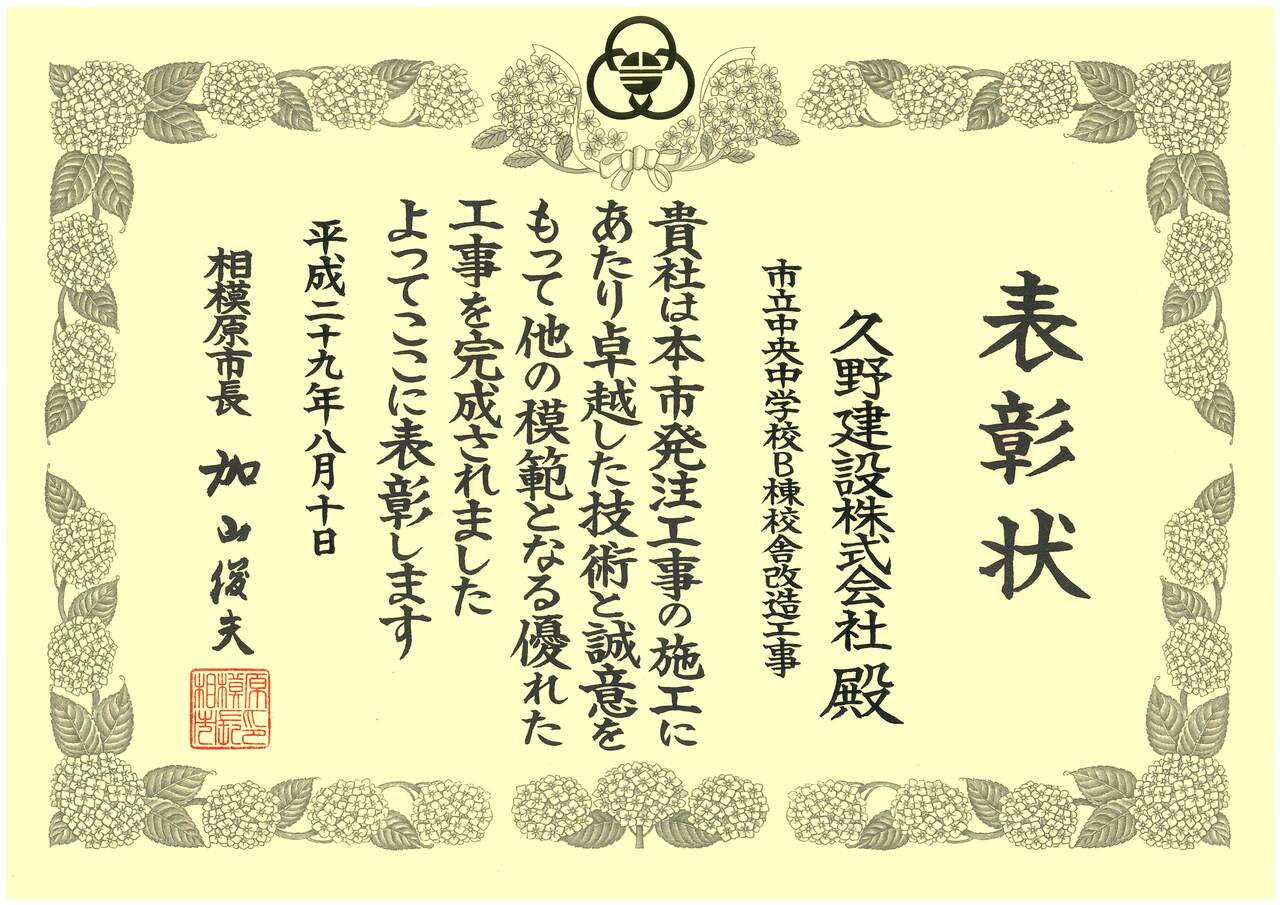 表彰状
久野建設株式会社 殿
市立中央中学校B棟校舎改造工事
貴社は本市発注工事の施工に
あたり卓越した技術と誠意を
もって他の模範となる優れた
工事を完成されました
よってここに表彰します
平成二十九年八月十日
相模原市長 加山俊夫
相模原市長之印